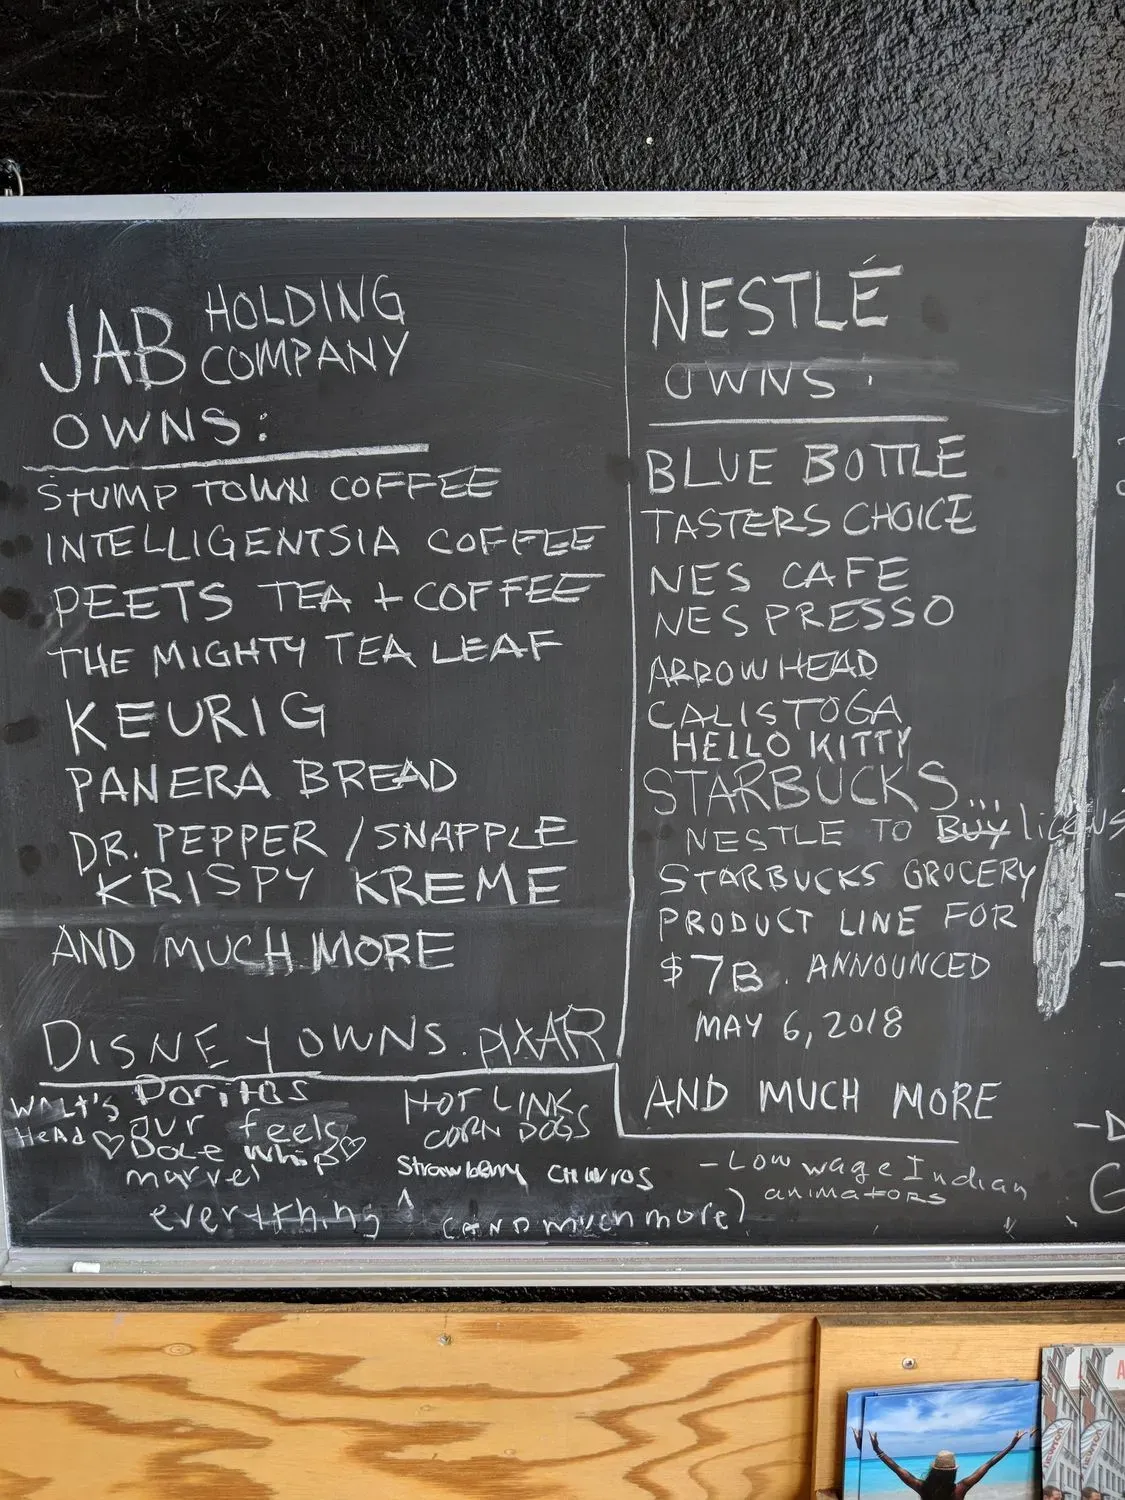 JAB HOLDING COMPANY
OWNS:
STUMP TOWN COFFEE
INTELLIGENTSIA COFFEE
PEETS TEA + COFFEE
THE MIGHTY TEA LEAF
KEURIG
PANERA BREAD
DR. PEPPER / SNAPPLE
KRISPY KREME
AND MUCH MORE
DISNEY OWNS. PIXAR
WALT'S HEAD
Doritos
♡ our feels
DOLE Whip ♡
marvel
everything
HOT LINK
CORN DOGS
Strawberry CHURROS
(AND much more)
NESTLÉ
OWNS:
BLUE BOTTLE
TASTERS CHOICE
NES CAFE
NESPRESSO
ARROWHEAD
CALISTOGA
HELLO KITTY
STARBUCKS...
NESTLE TO BUY licens
STARBUCKS GROCERY
PRODUCT LINE FOR
$7B. ANNOUNCED
MAY 6, 2018
AND MUCH MORE
- LOW wage Indian
animators